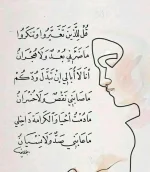 قُل للَّذين تغيَّروا وتنكَّروا
ما ضرَّني بُعدٌ ولا هُجرانُ
أنا لا أُبالي إن تبدَّل ودُّكم
ما صابني نقصٌ ولا خسرانُ
ما دمتُ أحيا والكرامةُ داخلي
ما عابني صدٌّ ولا نسيانُ